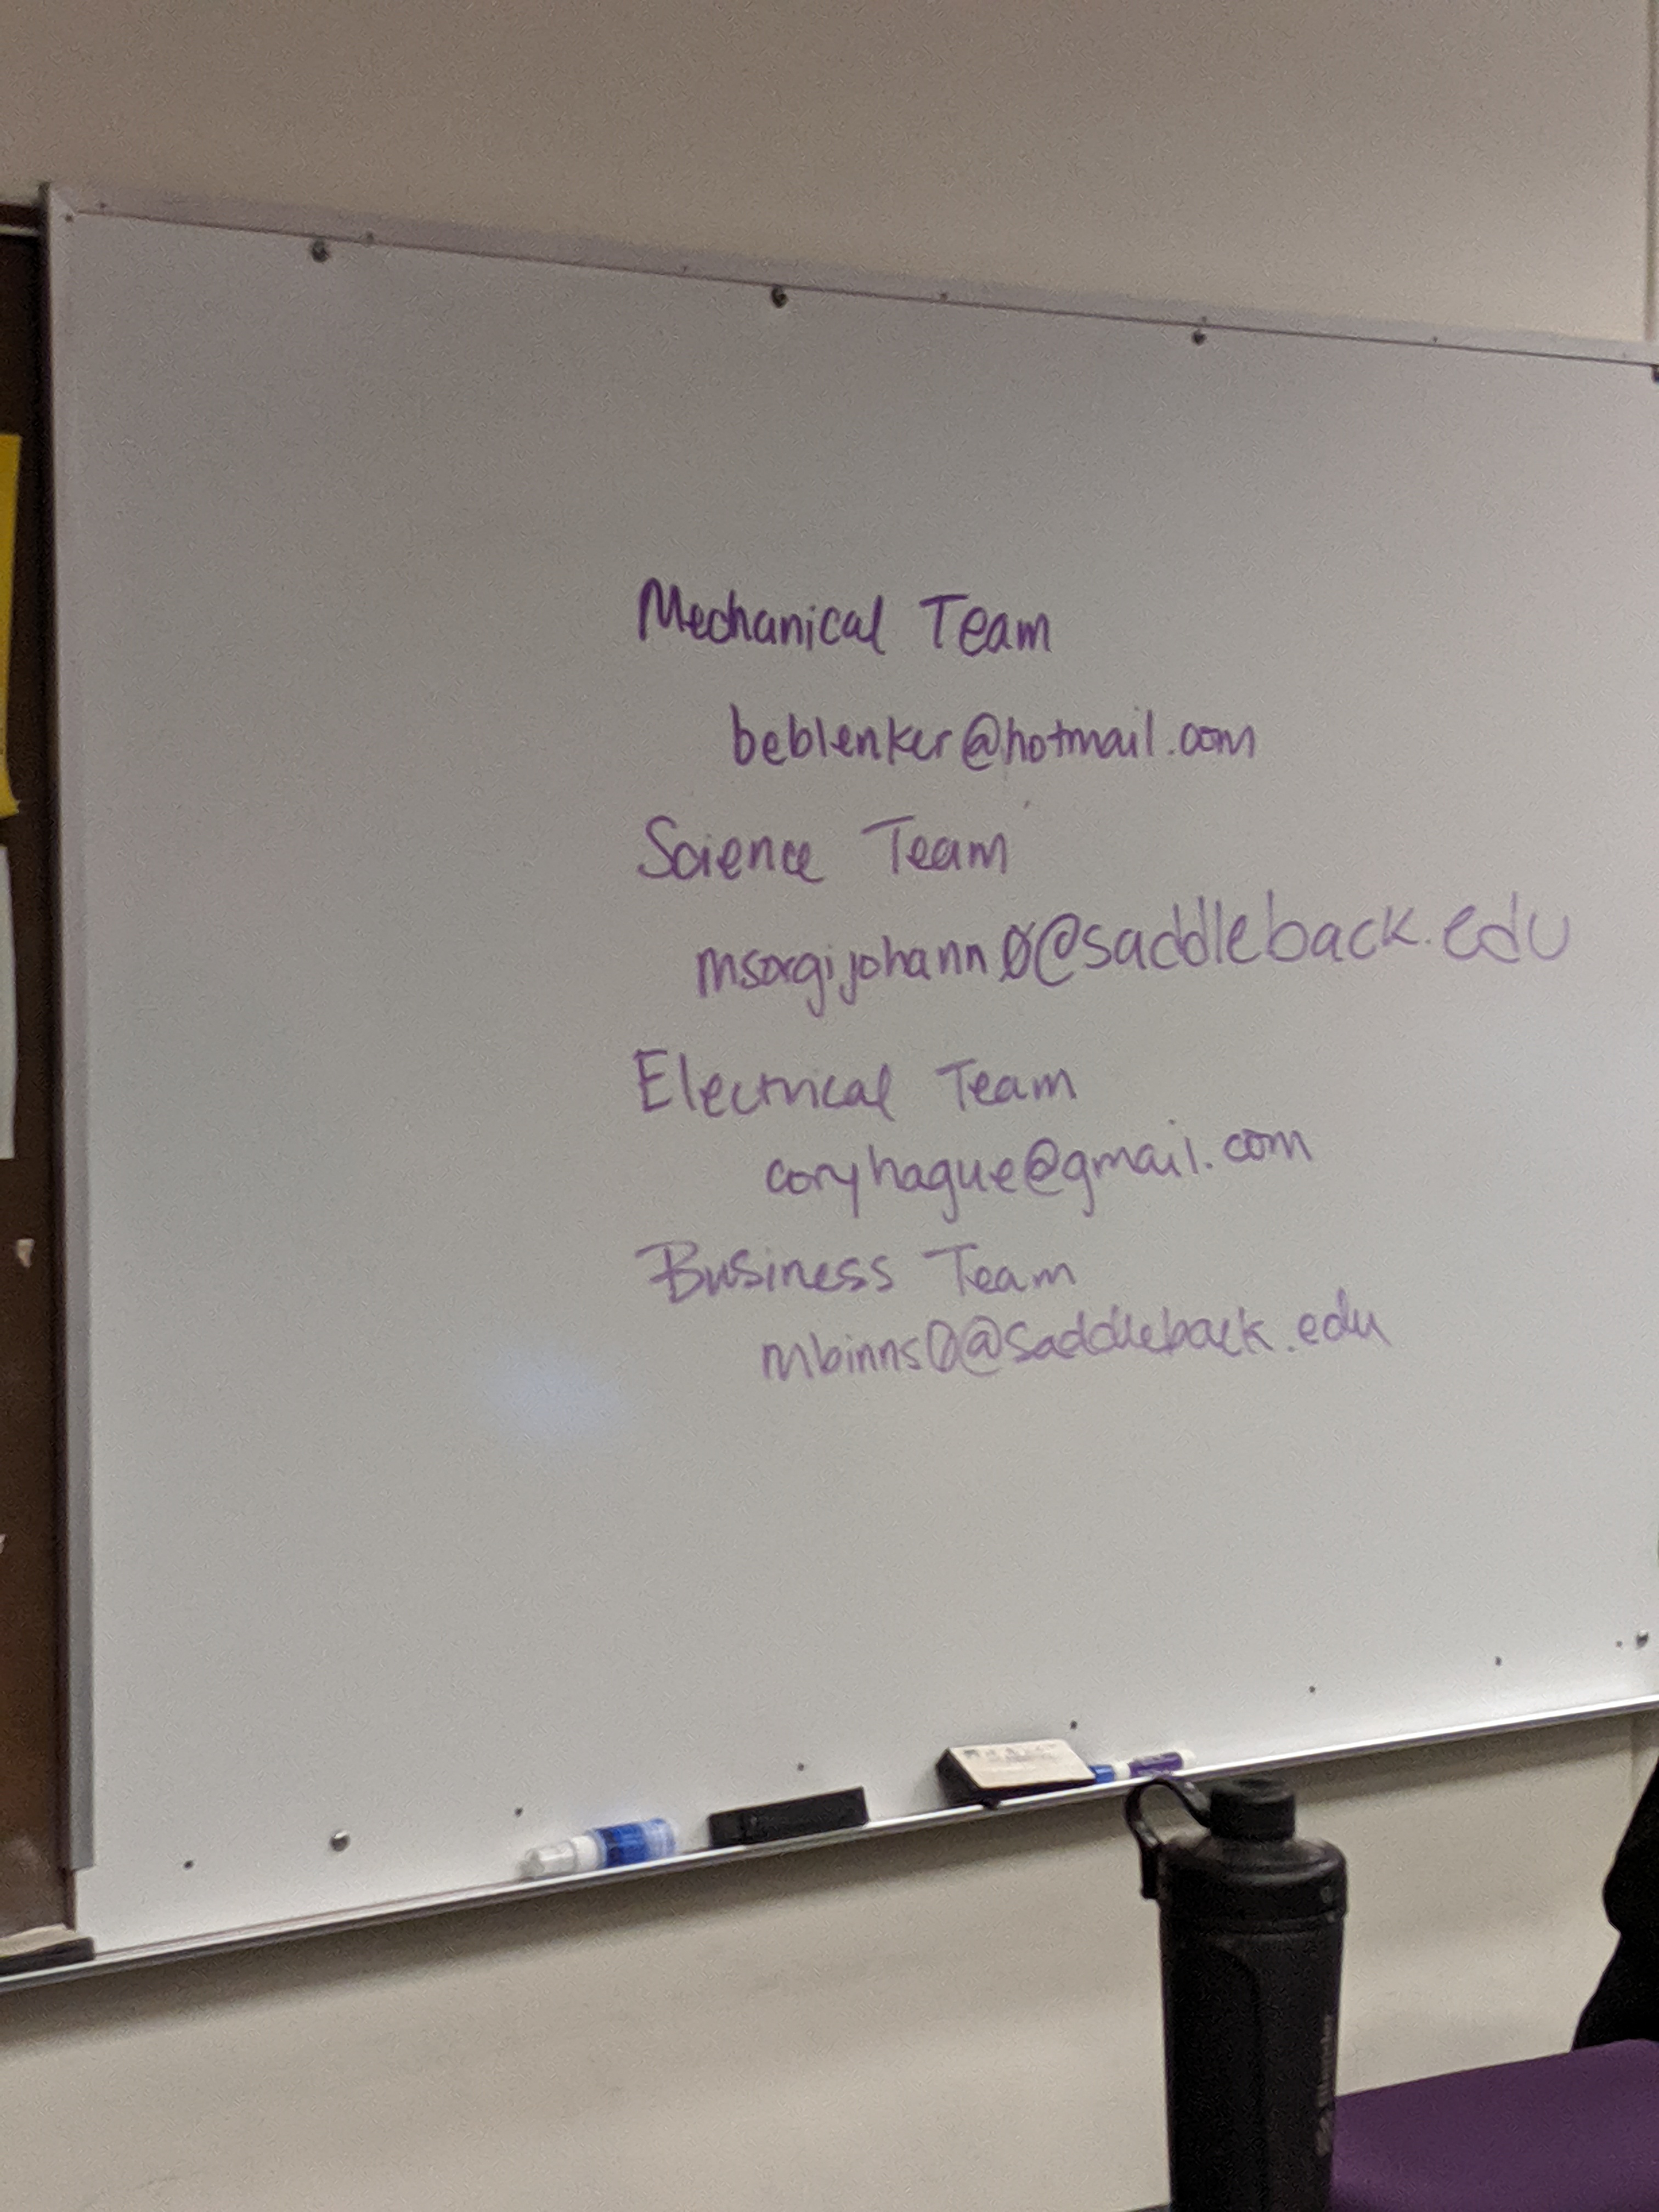 Mechanical Team
beblenker@hotmail.com
Science Team
msorgijohann0@saddleback.edu
Electrical Team
coryhague@gmail.com
Business Team
mbinns0@saddleback.edu